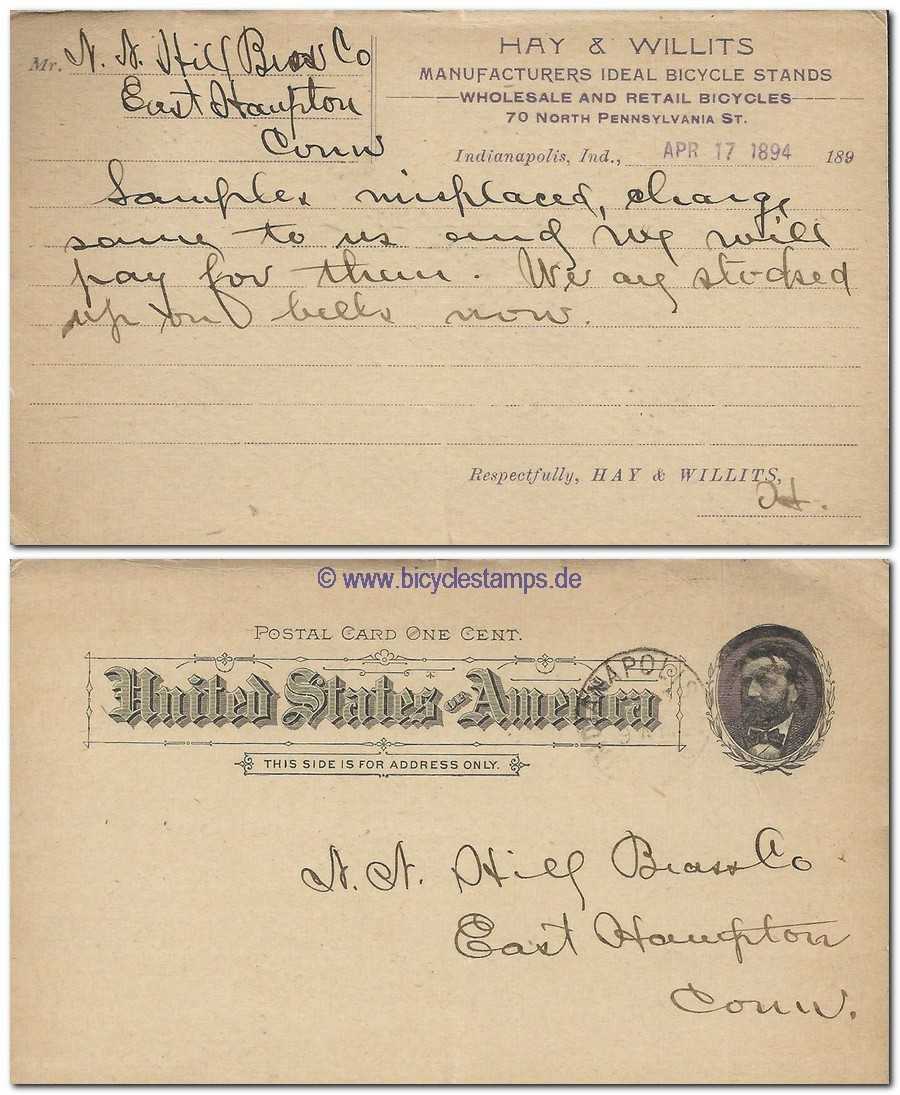 Mr. N. N. Hill Brass Co
East Hampton
Conn
HAY & WILLITS
MANUFACTURERS IDEAL BICYCLE STANDS
WHOLESALE AND RETAIL BICYCLES
70 NORTH PENNSYLVANIA ST.
Indianapolis, Ind., APR 17 1894 189
Samples misplaced, charge
same to us and we will
pay for them. We are stocked
up on bells now.
Respectfully, HAY & WILLITS,
© www.bicyclestamps.de
POSTAL CARD ONE CENT.
United States of America
THIS SIDE IS FOR ADDRESS ONLY.
N. N. Hill Brass Co
East Hampton
Conn.